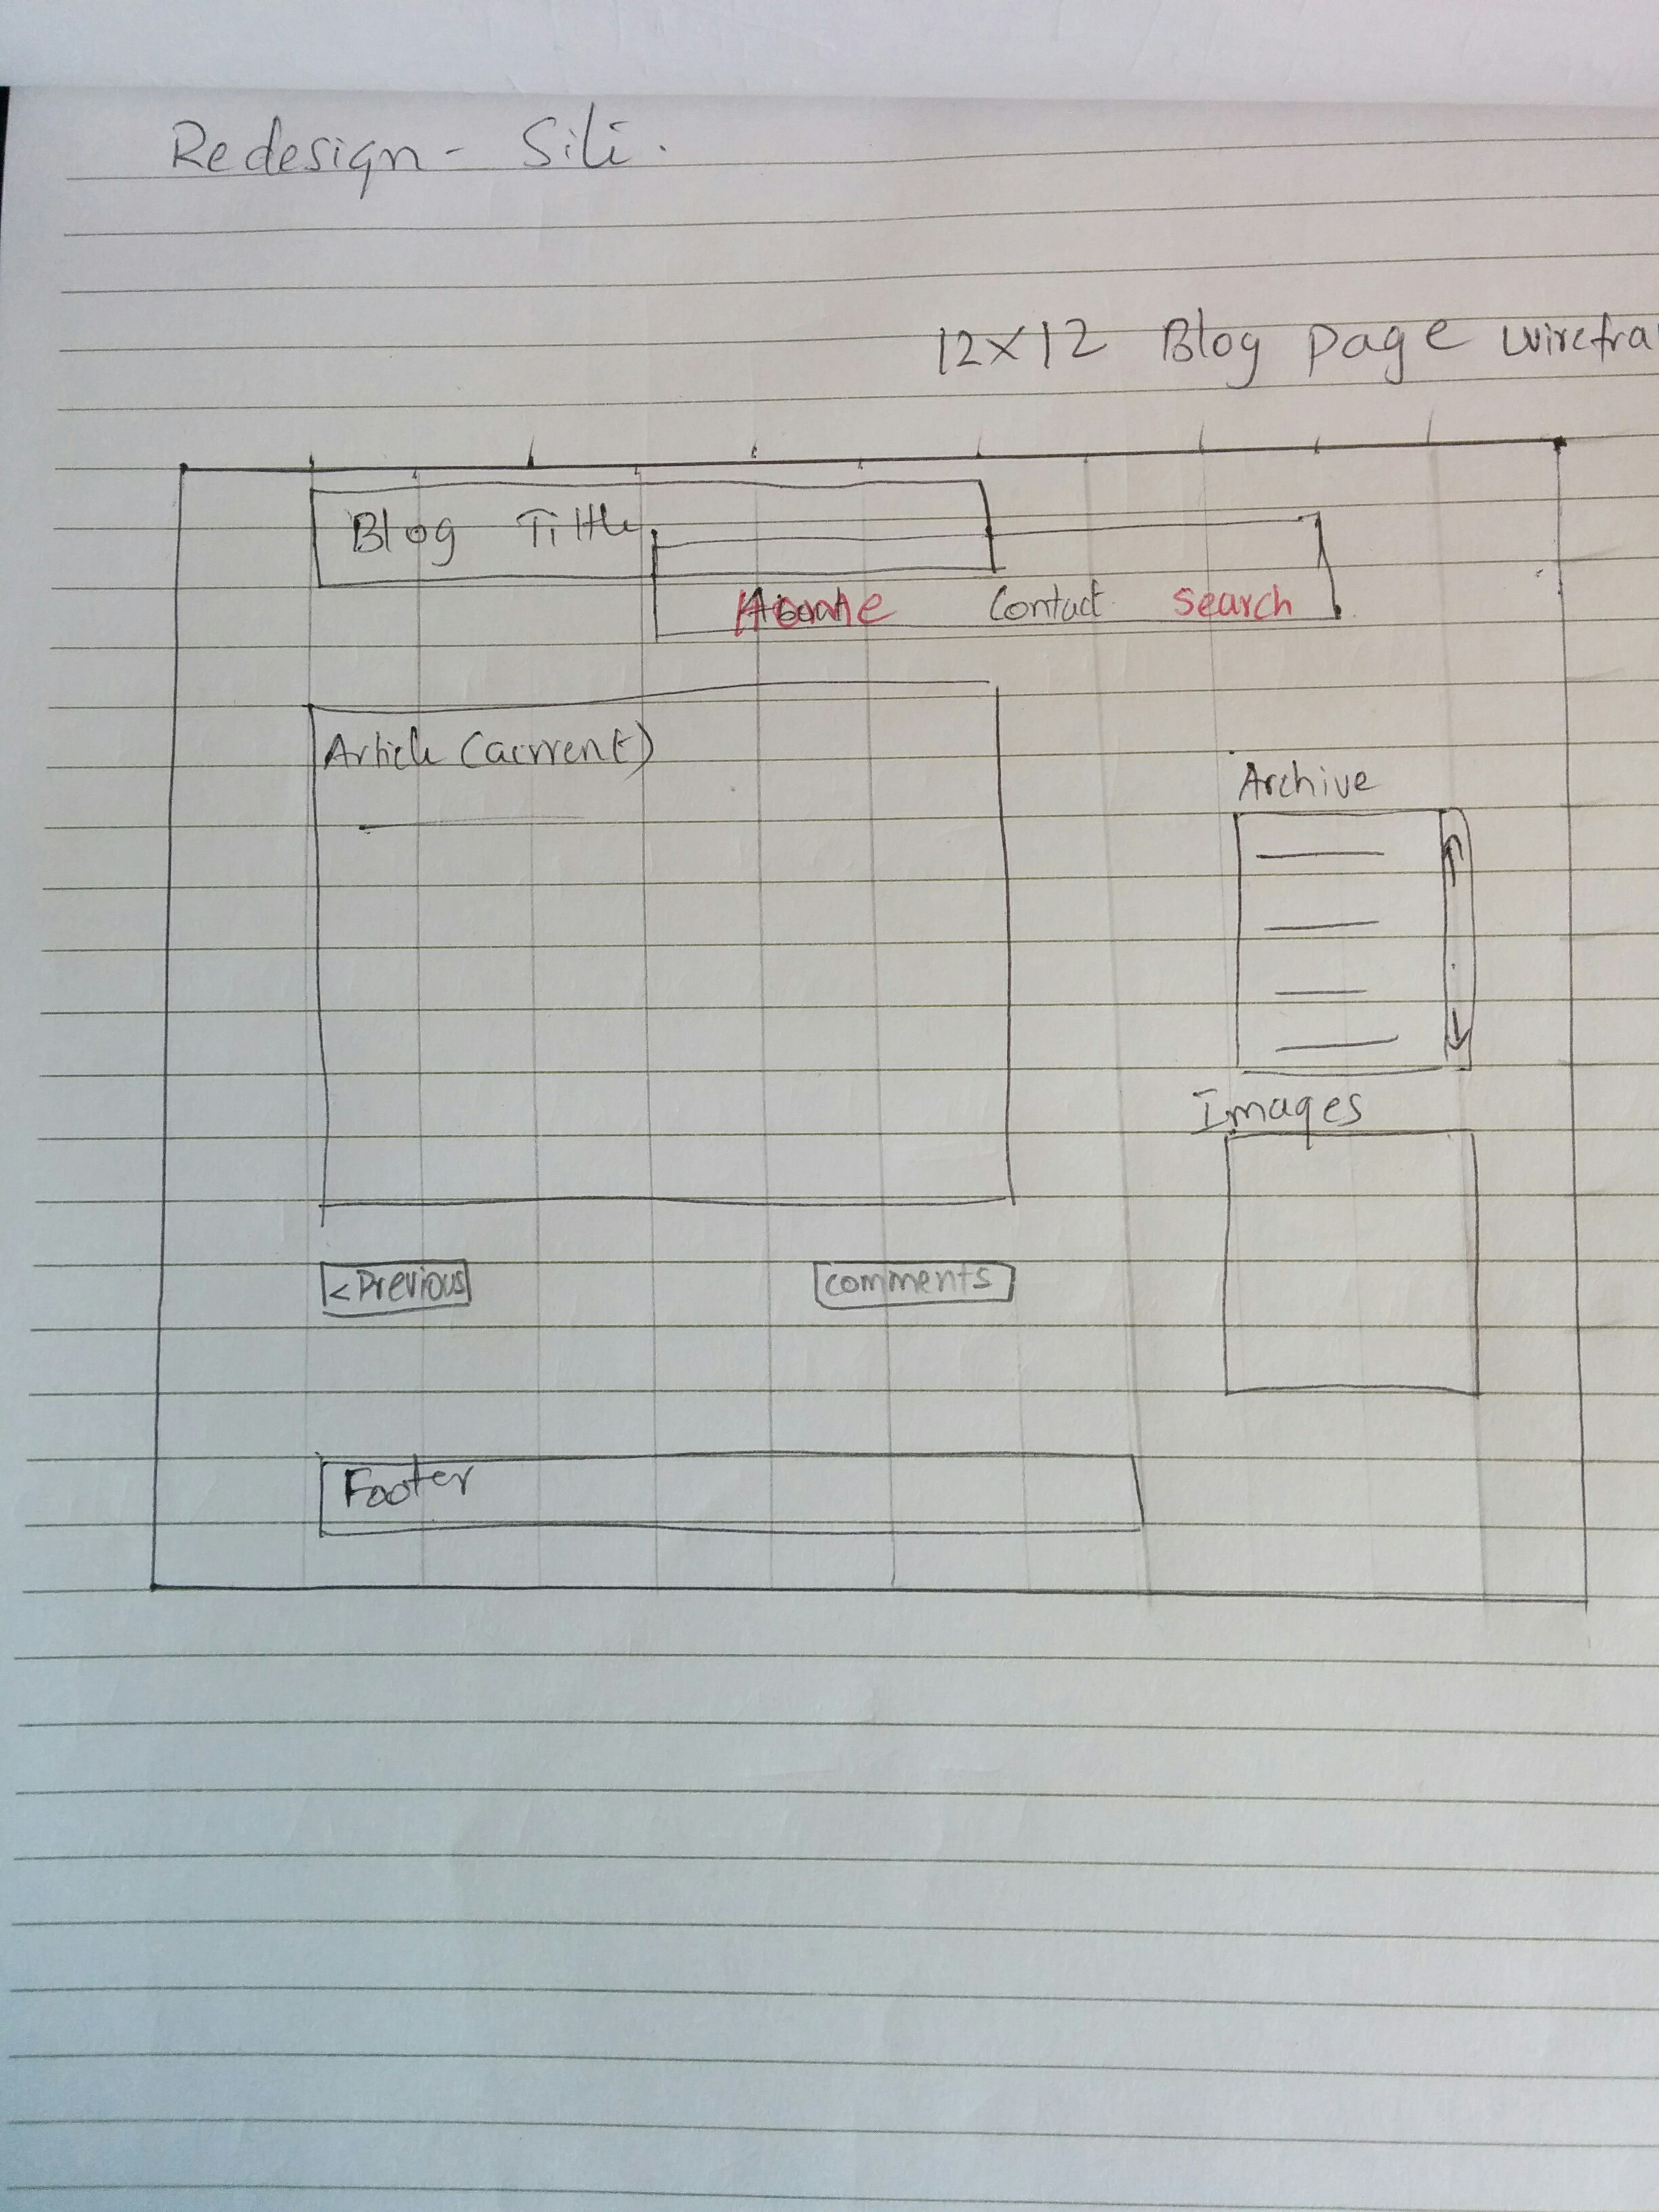 Redesign - Sili.
12x12 Blog page wirefra
Blog Tittle
Home Contact Search
Article (current)
Archive
Images
< Previous
comments
Footer